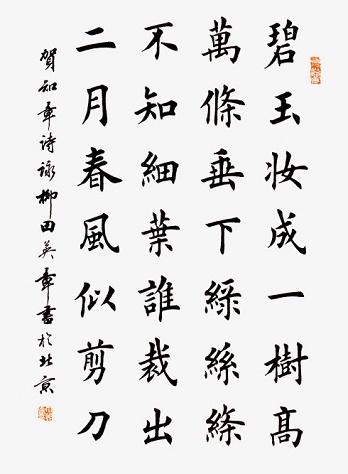 碧玉妆成一樹高
萬條垂下綠絲絛
不知細葉誰裁出
二月春風似剪刀
賀知章詩詠柳田英章書於北京